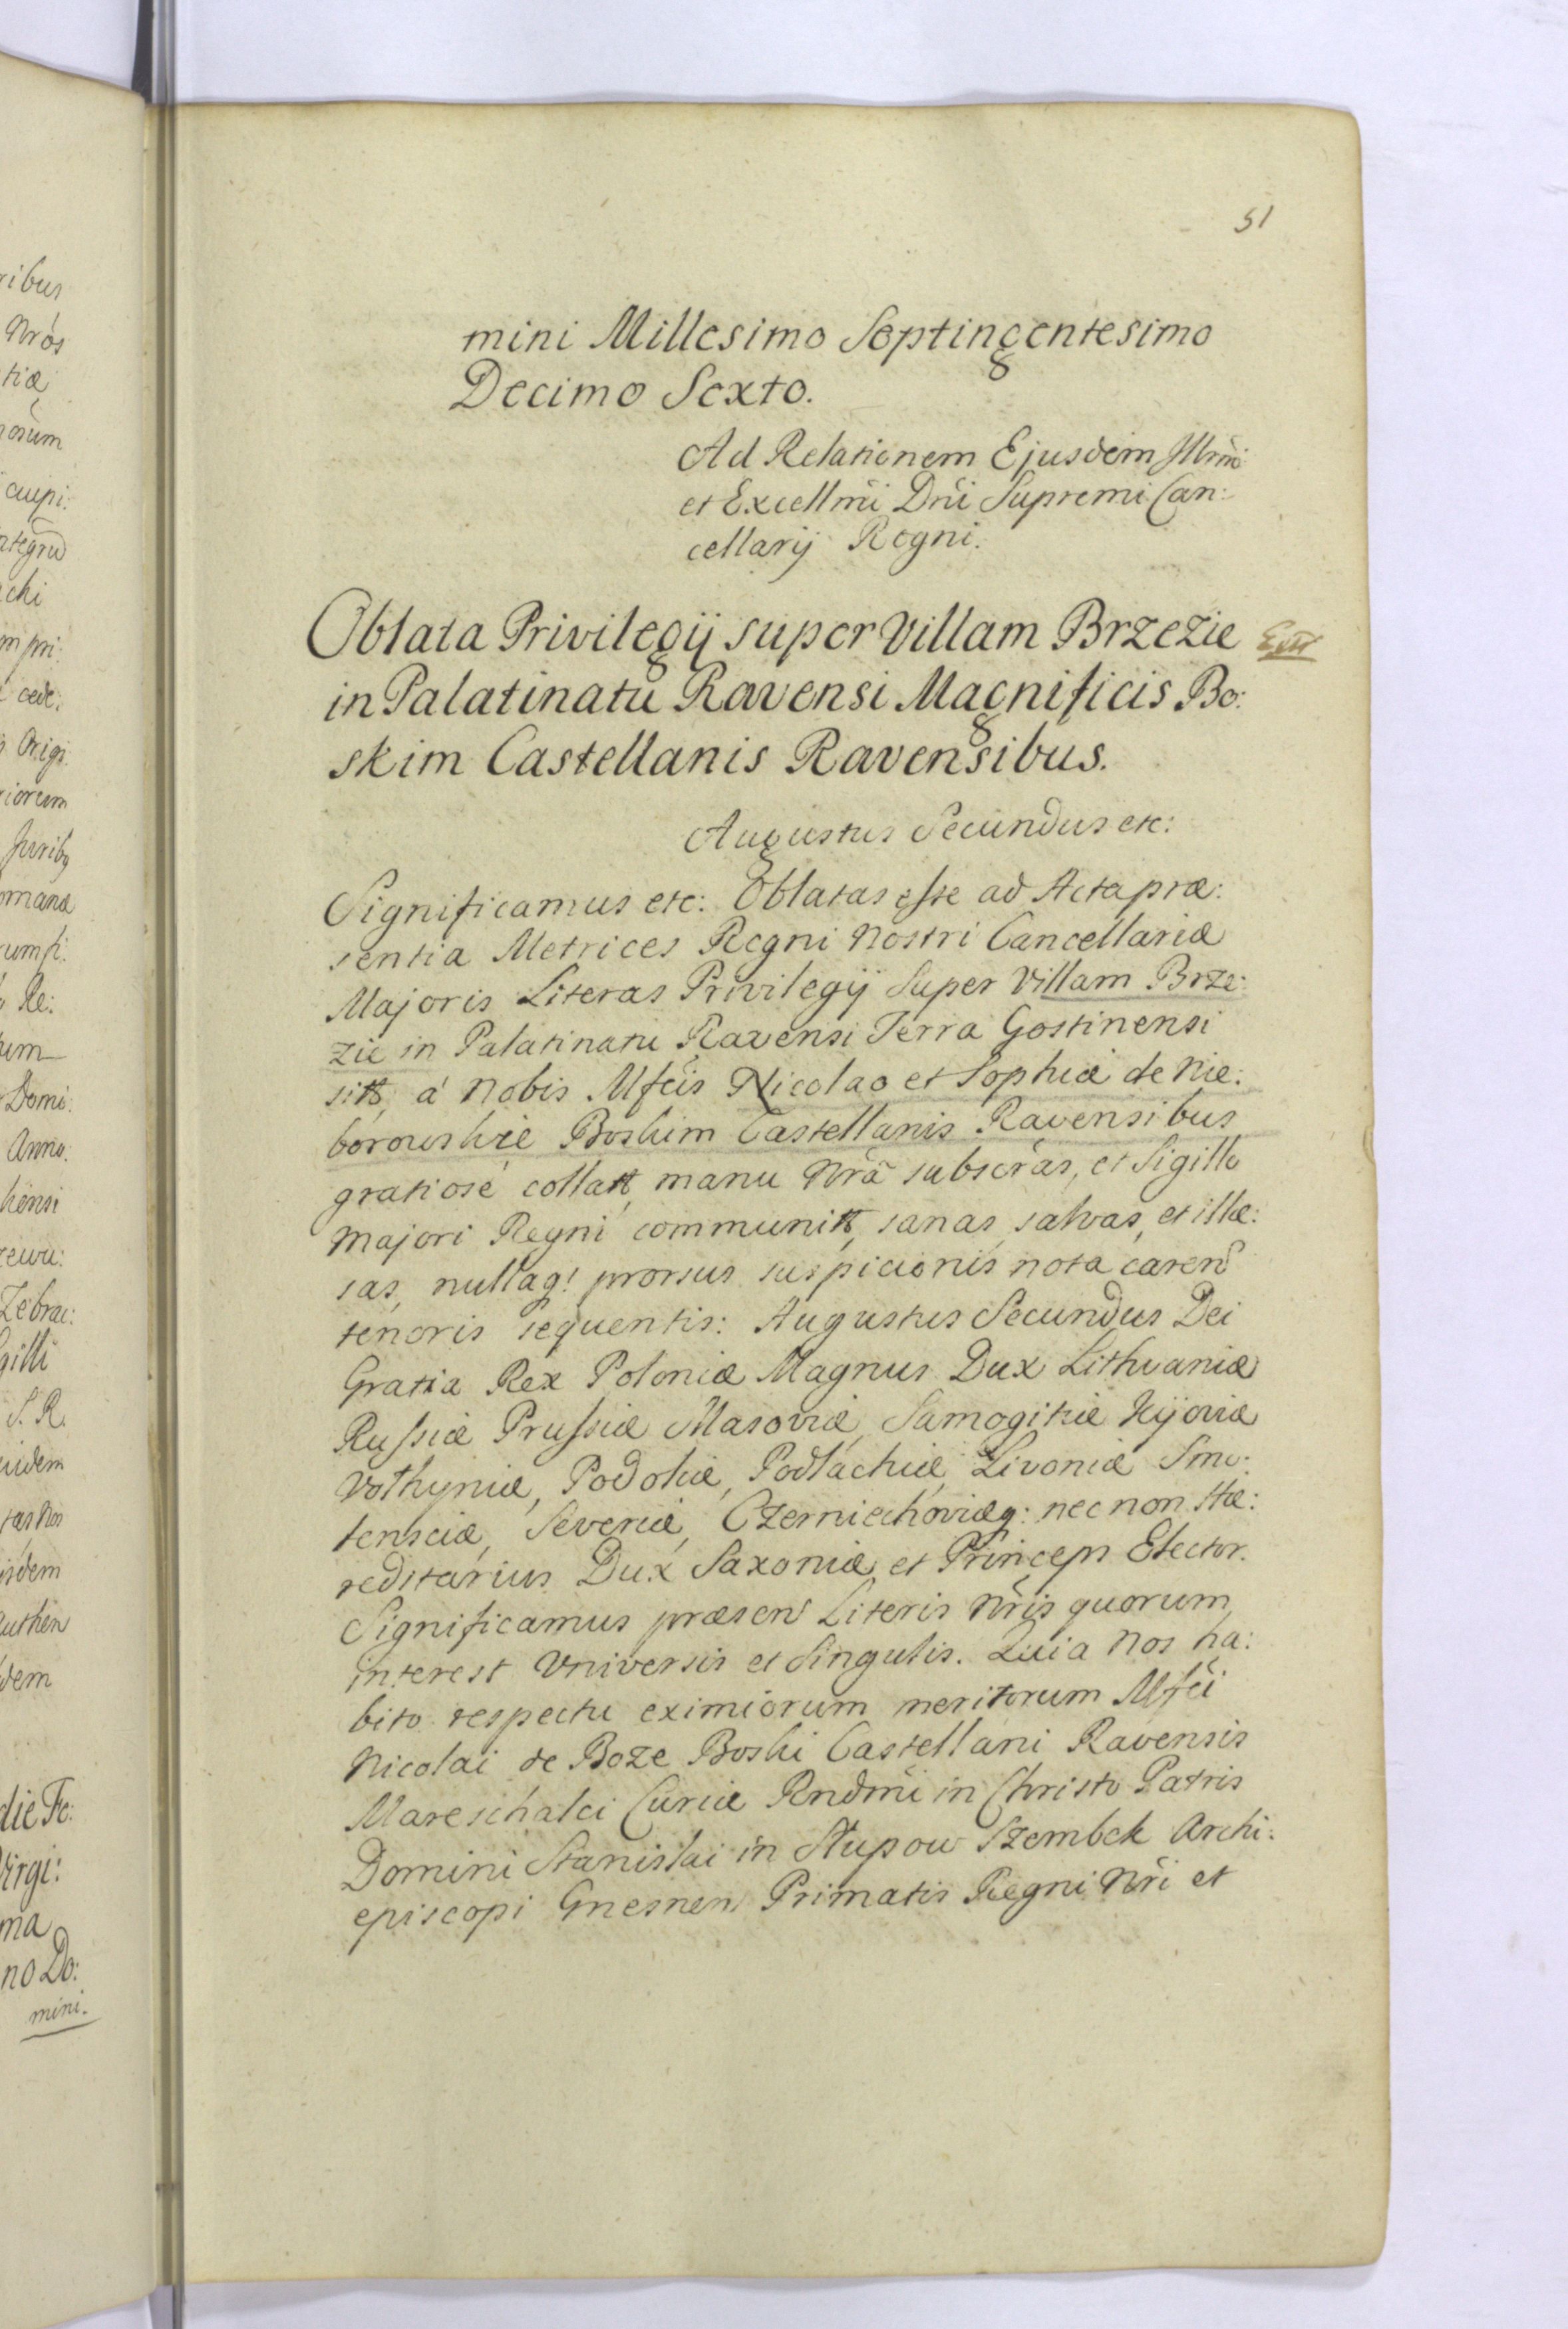 51
mini Millesimo Septingentesimo
Decimo Sexto.
Ad Relationem Ejusdem Illrmi
et Excellmi Dni Supremi Can:
cellarij Regni.
Oblata Privilegij super Villam Brzezie
in Palatinatu Ravensi Magnificis Bo:
skim Castellanis Ravensibus.
Augustus Secundus etc:
Significamus etc: Oblatas esse ad Acta præ:
sentia Metrices Regni Nostri Cancellariæ
Majoris Literas Privilegij super Villam Brze:
zie in Palatinatu Ravensi Terra Gostinensi
sitt, á Nobis Mfcis Nicolao et Sophiæ de Nie:
borowskie Boskim Castellanis Ravensibus
gratiosé collatt, manu Nrã subscras, et Sigillo
Majori Regni communitt, sanas, salvas, et illæ:
sas, nullaq! prorsus suspicionis nota caren
tenoris sequentis: Augustus Secundus Dei
Gratia Rex Poloniæ Magnus Dux Lithvaniæ
Russiæ Prussiæ Masoviæ, Samogitiæ Kijoviæ
Volhyniæ, Podoliæ, Podlachiæ, Livoniæ Smo:
lensciæ, Severiæ, Czerniechoviæq: nec non Hæ:
reditarius Dux Saxoniæ et Princeps Elector.
Significamus præsen Literis Nris quorum
interest Vniversis et Singulis. Quia Nos ha:
bito respectu eximiorum meritorum Mfci
Nicolai de Boze Boski Castellani Ravensis
Mareschalci Curiæ Rndmi in Christo Patris
Domini Stanislai in Słupow Szembek Archi:
episcopi Gnesnen Primatis Regni Nri et
ribus
Nros
tiæ
cupi:
cede:
Origi:
riorum
Re:
Domi:
Anno:
Zebrac:
gilli
S. R.
eidem
die Fe:
Virgi:
ma
no Do:
mini.